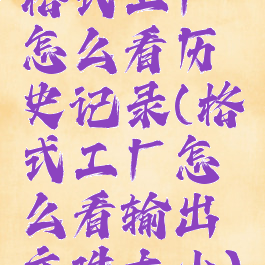 格式工厂
怎么看历
史记录(格
式工厂怎
么看输出